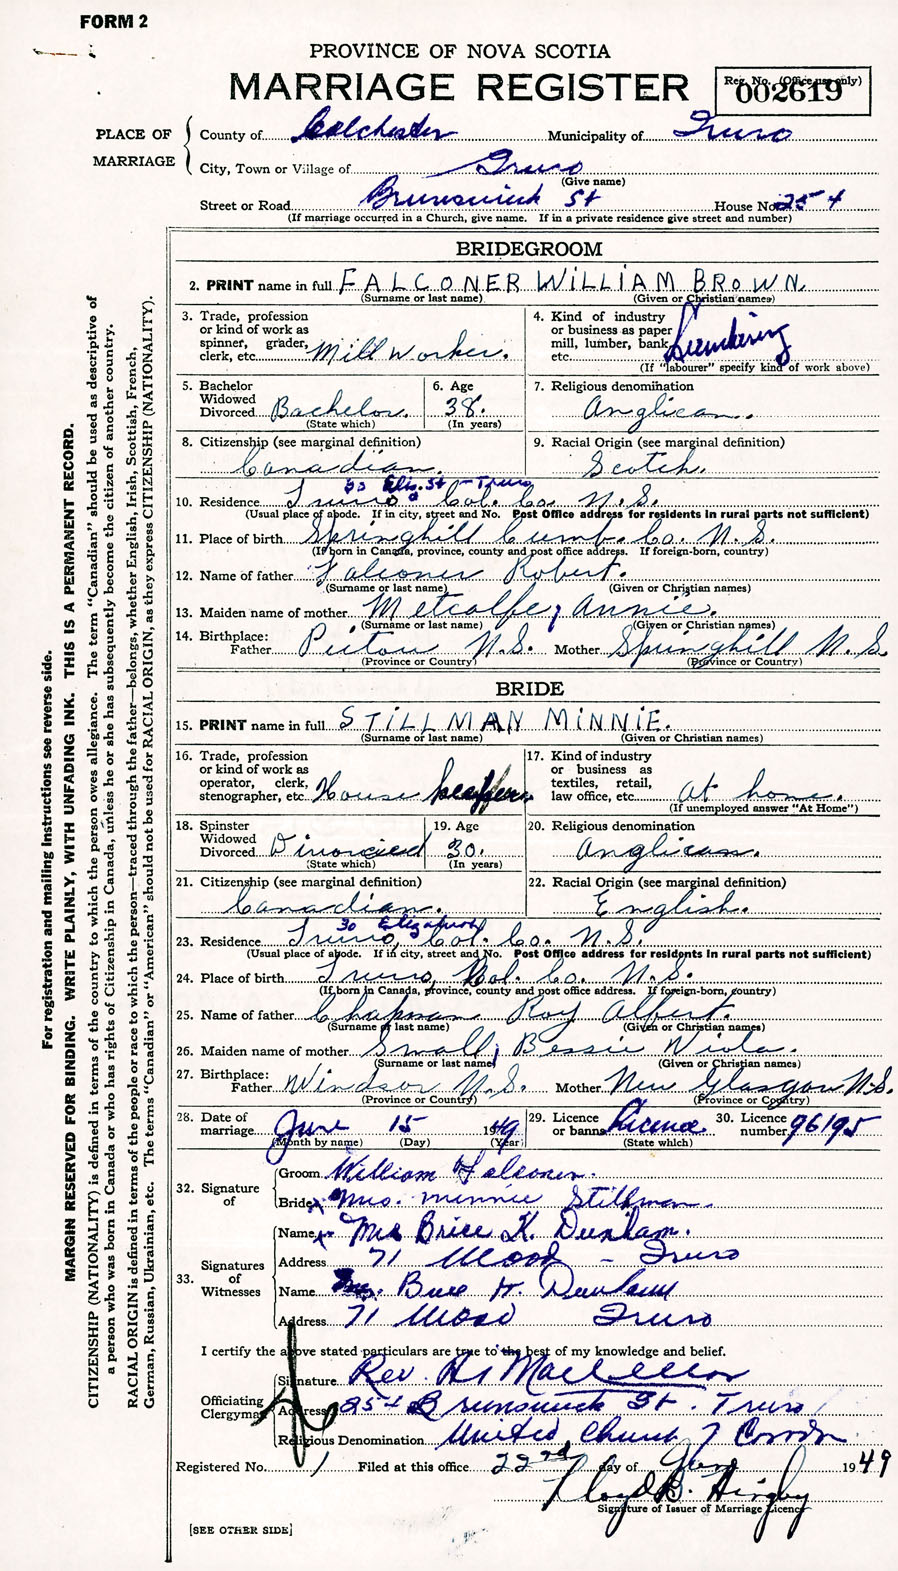 FORM 2
PROVINCE OF NOVA SCOTIA
MARRIAGE REGISTER
Reg. No. (Office use only)
002619
PLACE OF MARRIAGE
County of Colchester Municipality of Truro
City, Town or Village of Truro
(Give name)
Street or Road Brunswick St House No. 254
(If marriage occurred in a Church, give name. If in a private residence give street and number)
BRIDEGROOM
2. PRINT name in full FALCONER WILLIAM BROWN
(Surname or last name) (Given or Christian names)
3. Trade, profession or kind of work as spinner, grader, clerk, etc. Mill Worker.
4. Kind of industry or business as paper mill, lumber, bank, etc. Lumbering
(If "labourer" specify kind of work above)
5. Bachelor Widowed Divorced Bachelor.
(State which)
6. Age 38.
(In years)
7. Religious denomination Anglican.
8. Citizenship (see marginal definition) Canadian.
9. Racial Origin (see marginal definition) Scotch.
30 Eliz. St - Truro
10. Residence Truro Col. Co. N.S.
(Usual place of abode. If in city, street and No. Post Office address for residents in rural parts not sufficient)
11. Place of birth Springhill Cumb. Co. N.S.
(If born in Canada, province, county and post office address. If foreign-born, country)
12. Name of father Falconer Robert.
(Surname or last name) (Given or Christian names)
13. Maiden name of mother Metcalfe, Annie.
(Surname or last name) (Given or Christian names)
14. Birthplace: Father Pictou N.S. Mother Springhill N.S.
(Province or Country) (Province or Country)
BRIDE
15. PRINT name in full STILLMAN MINNIE.
(Surname or last name) (Given or Christian names)
16. Trade, profession or kind of work as operator, clerk, stenographer, etc. House keeper.
17. Kind of industry or business as textiles, retail, law office, etc. at home.
(If unemployed answer "At Home")
18. Spinster Widowed Divorced Divorced
(State which)
19. Age 30.
(In years)
20. Religious denomination Anglican.
21. Citizenship (see marginal definition) Canadian.
22. Racial Origin (see marginal definition) English.
30 Elizabeth
23. Residence Truro, Col. Co. N.S.
(Usual place of abode. If in city, street and No. Post Office address for residents in rural parts not sufficient)
24. Place of birth Truro, Col. Co. N.S.
(If born in Canada, province, county and post office address. If foreign-born, country)
25. Name of father Chapman Roy Albert.
(Surname or last name) (Given or Christian names)
26. Maiden name of mother Small, Bessie Viola.
(Surname or last name) (Given or Christian names)
27. Birthplace: Father Windsor N.S. Mother New Glasgow N.S.
(Province or Country) (Province or Country)
28. Date of marriage June 15 1949
(Month by name) (Day) (Year)
29. Licence or banns Licence
(State which)
30. Licence number 96195
32. Signature of
Groom William Falconer.
Bride Mrs. Minnie Stillman.
33. Signatures of Witnesses
Name Mrs Brice K. Dunham.
Address 71 Wood - Truro
Name Brice H. Dunham
Address 71 Wood Truro
I certify the above stated particulars are true to the best of my knowledge and belief.
Officiating Clergyman
Signature Rev.
Address 254 Brunswick St. Truro
Religious Denomination United Church of Canada
Registered No. 1 Filed at this office 22nd day of June 1949
Lloyd B.
Signature of Issuer of Marriage Licence
[SEE OTHER SIDE]
For registration and mailing instructions see reverse side.
MARGIN RESERVED FOR BINDING. WRITE PLAINLY, WITH UNFADING INK. THIS IS A PERMANENT RECORD.
CITIZENSHIP (NATIONALITY) is defined in terms of the country to which the person owes allegiance. The term "Canadian" should be used as descriptive of
a person who was born in Canada or who has rights of Citizenship in Canada, unless he or she has subsequently become the citizen of another country.
RACIAL ORIGIN is defined in terms of the people or race to which the person—traced through the father—belongs, whether English, Irish, Scottish, French,
German, Russian, Ukrainian, etc. The terms "Canadian" or "American" should not be used for RACIAL ORIGIN, as they express CITIZENSHIP (NATIONALITY).